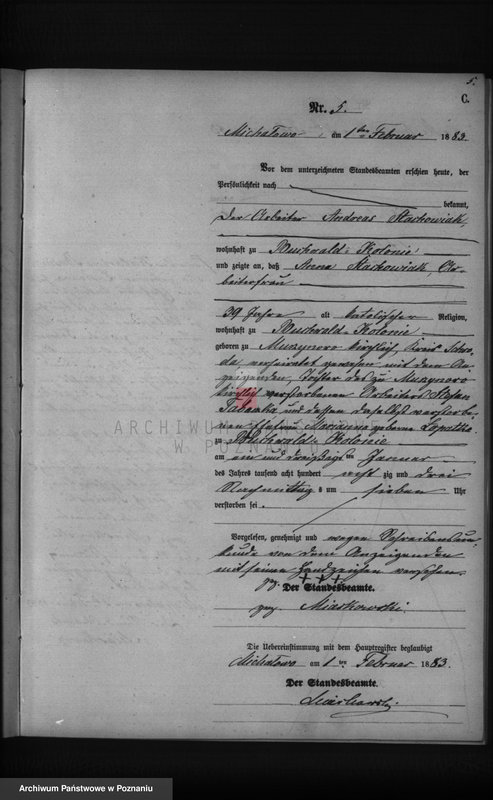 5.
C.
Nr. 5.
Michałowo, am 1ten Februar 1883
Vor dem unterzeichneten Standesbeamten erschien heute, der
Persönlichkeit nach
bekannt,
der Arbeiter Andreas Stachowiak,
wohnhaft zu Buchwald-Kolonie
und zeigte an, daß Anna Stachowiak, Ar-
beiterfrau
39 Jahre alt katolischer Religion,
wohnhaft zu Buchwald-Kolonie
geboren zu kirchlich, Kreis Schro-
da verheirathet gewesen mit dem An-
zeigenden, Tochter des zu
kirchlich verstorbenen Arbeiters Stefan
und dessen daselbst verstorbe-
nen Ehefrau Marianna geborene
ARCHIWUM
W POZNANIU
zu Buchwald-Kolonie
am ein und dreißigsten Januar
des Jahres tausend acht hundert achtzig und drei
Nachmittag s um sieben Uhr
verstorben sei.
Vorgelesen, genehmigt und wegen Schreibensun-
kunde von dem Anzeigenden
mit seinen Handzeichen versehen.
gz. +++
Der Standesbeamte.
gez. Miaskowski.
Die Uebereinstimmung mit dem Hauptregister beglaubigt
Michałowo am 1ten Februar 1883.
Der Standesbeamte.
Miaskowski.
Archiwum Państwowe w Poznaniu